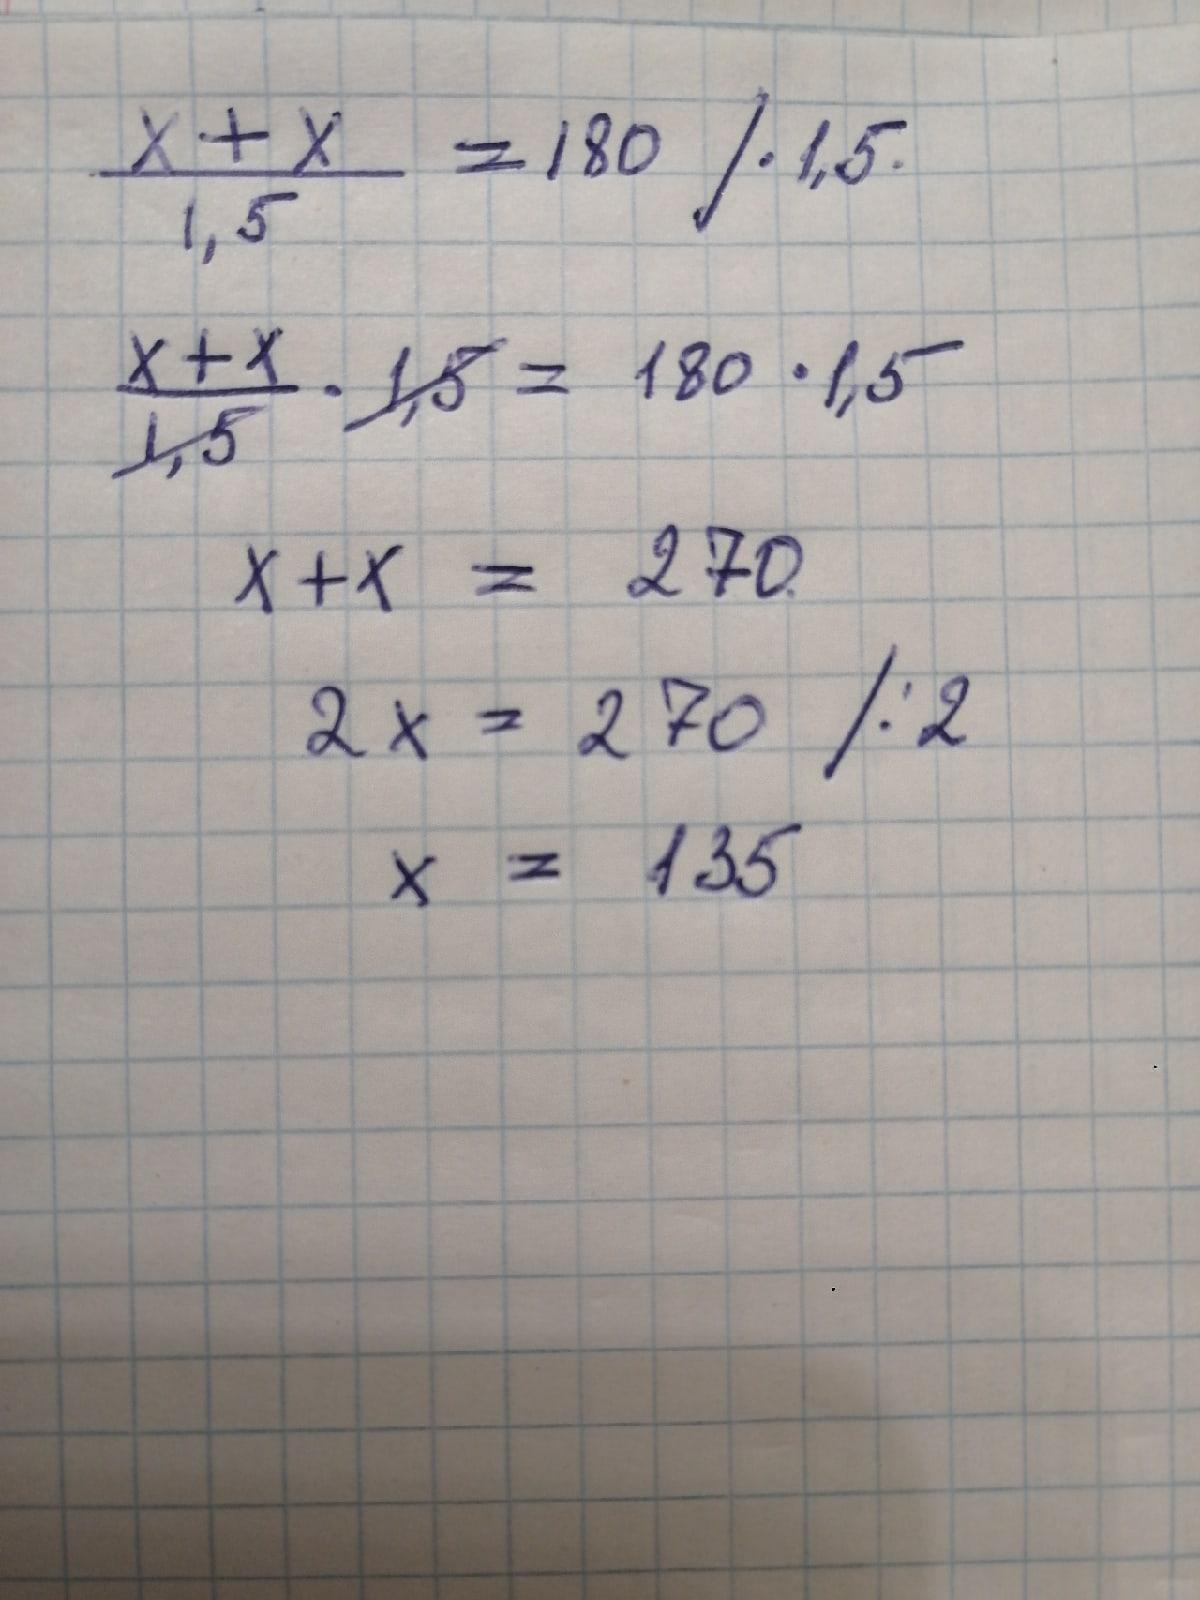 x + x / 1,5 = 180 /· 1,5.
x + x / 1,5 · 1,5 = 180 · 1,5
x + x = 270.
2x = 270 /: 2
x = 135